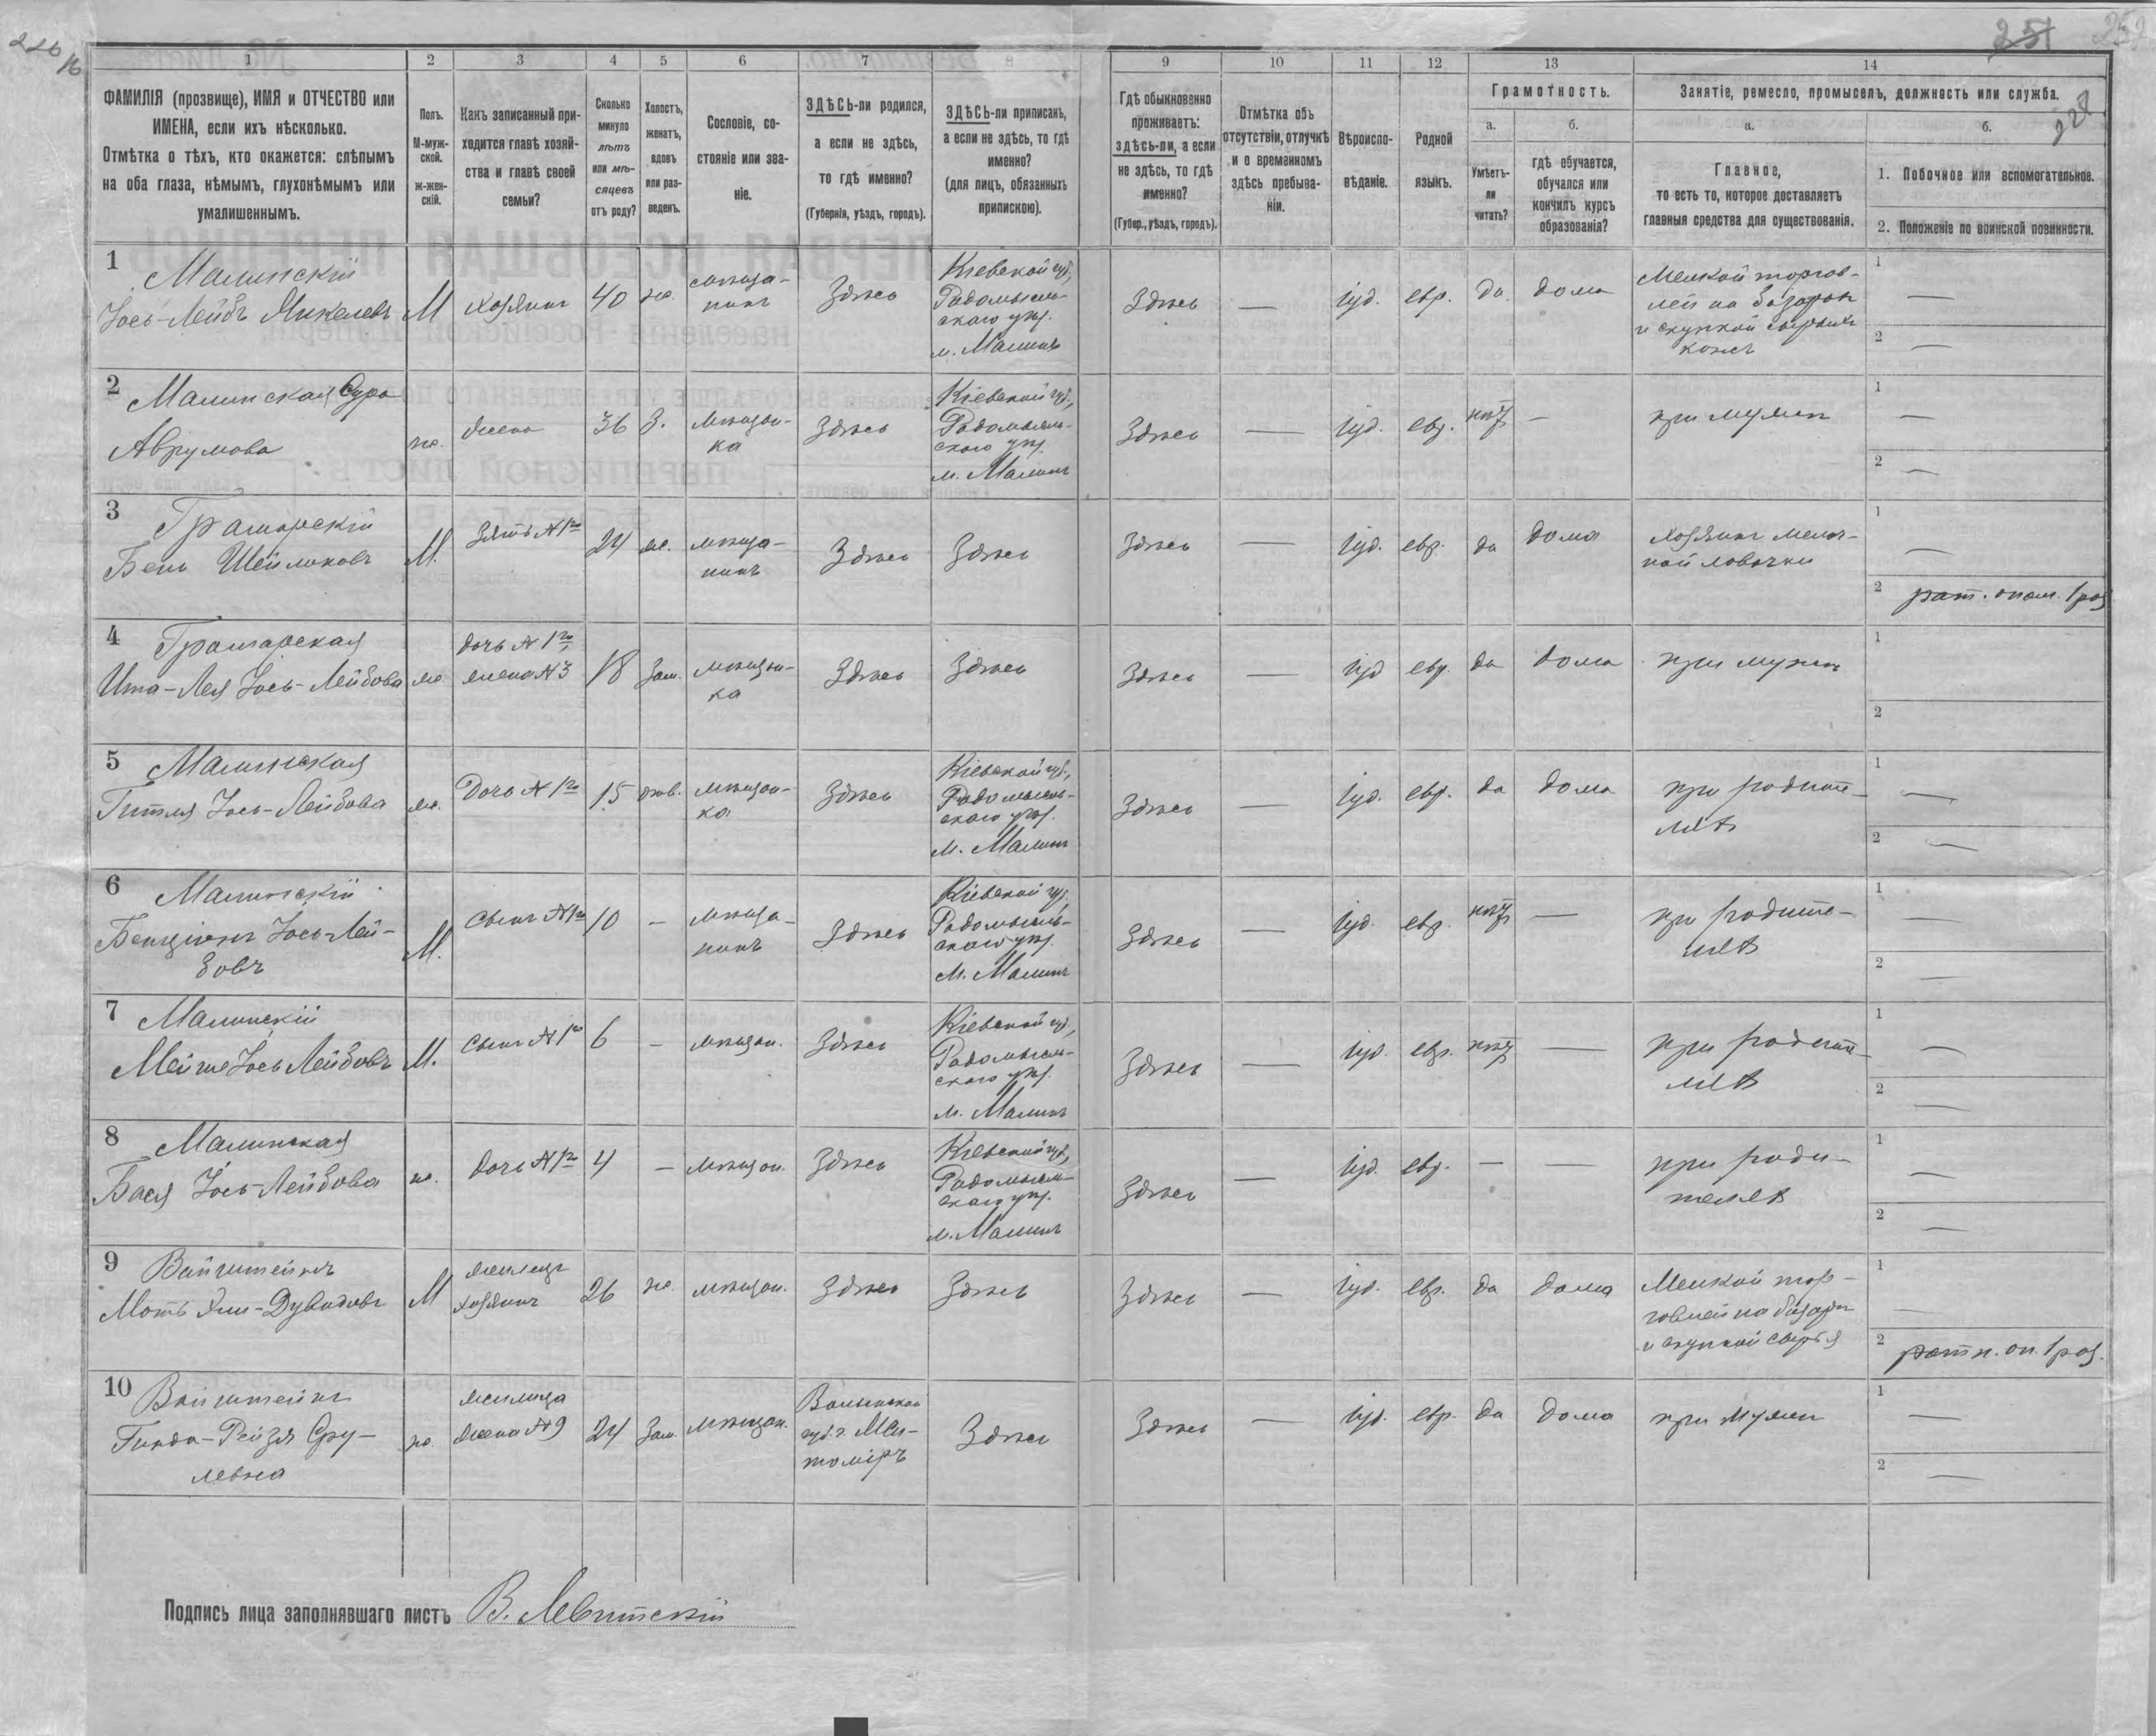 226
16
251
252
228
1 2 3 4 5 6 7 8 9 10 11 12 13 14
ФАМИЛІЯ (прозвище), ИМЯ и ОТЧЕСТВО или
ИМЕНА, если ихъ нѣсколько.
Отмѣтка о тѣхъ, кто окажется: слѣпымъ
на оба глаза, нѣмымъ, глухонѣмымъ или
умалишеннымъ.
Полъ.
М-муж-
ской.
ж-жен-
скій.
Какъ записанный при-
ходится главѣ хозяй-
ства и главѣ своей
семьи?
Сколько
минуло
лѣтъ
или мѣ-
сяцевъ
отъ роду?
Холостъ,
женатъ,
вдовъ
или раз-
веденъ.
Сословіе, со-
стояніе или зва-
ніе.
ЗДѢСЬ-ли родился,
а если не здѣсь,
то гдѣ именно?
(Губернія, уѣздъ, городъ).
ЗДѢСЬ-ли приписанъ,
а если не здѣсь, то гдѣ
именно?
(для лицъ, обязанныхъ
припискою).
Гдѣ обыкновенно
проживаетъ:
здѣсь-ли, а если
не здѣсь, то гдѣ
именно?
(Губер., уѣздъ, городъ).
Отмѣтка объ
отсутствіи, отлучкѣ
и о временномъ
здѣсь пребыва-
ніи.
Вѣроиспо-
вѣданіе.
Родной
языкъ.
Грамотность.
а.
Умѣетъ-
ли
читать?
б.
гдѣ обучается,
обучался или
кончилъ курсъ
образованія?
Занятіе, ремесло, промыселъ, должность или служба.
а.
Главное,
то есть то, которое доставляетъ
главныя средства для существованія.
б.
1. Побочное или вспомогательное.
2. Положеніе по воинской повинности.
1
Малинскій
Іось-Лейбъ Янкелевъ
М
Хозяинъ
40
ж.
мѣща-
нинъ
Здѣсь
Кіевской губ.,
Радомысль-
скаго уѣз.
м. Малинъ
Здѣсь
—
іуд.
евр.
да
дома
Мелкой торгов-
лей на базарѣ
и скупкой сырыхъ
кожъ
1 —
2 —
2
Малинская Сура
Аврумова
ж.
жена
36
З.
мѣщан-
ка
Здѣсь
Кіевской губ.,
Радомысль-
скаго уѣз.
м. Малинъ
Здѣсь
—
іуд.
евр.
нѣтъ
—
при мужѣ
1 —
2 —
3
Грамарскій
Бень Шейликовъ
М.
Зять №1го
24
ж.
мѣща-
нинъ
Здѣсь
Здѣсь
Здѣсь
—
іуд.
евр.
да
дома
Хозяинъ мелоч-
ной лавочки
1 —
2 рат. опол. 1 раз.
4
Грамарская
Ита-Лея Іось-Лейбова
ж.
дочь №1го,
жена №3
18
Зам.
мѣщан-
ка
Здѣсь
Здѣсь
Здѣсь
—
іуд
евр.
да
дома
при мужѣ
1
2
5
Малинская
Гитля Іось-Лейбова
ж.
Дочь №1го
15
дѣв.
мѣщан-
ка
Здѣсь
Кіевской губ.,
Радомысль-
скаго уѣз.
м. Малинъ
Здѣсь
—
іуд.
евр.
да
дома
при родите-
ляхъ
1 —
2 —
6
Малинскій
Бенціонъ Іось-Лей-
бовъ
М.
Сынъ №1го
10
—
мѣща-
нинъ
Здѣсь
Кіевской губ.
Радомысль-
скаго уѣз.
м. Малинъ
Здѣсь
—
іуд.
евр.
нѣтъ
—
при родите-
ляхъ
1 —
2 —
7
Малинскій
Мейше Іось Лейбовъ
М.
Сынъ №1го
6
—
мѣщан.
Здѣсь
Кіевской губ.,
Радомысль-
скаго уѣз.
м. Малинъ
Здѣсь
—
іуд.
евр.
нѣтъ
—
при родите-
ляхъ
1 —
2 —
8
Малинская
Бася Іось-Лейбова
ж.
дочь №1го
4
—
мѣщан.
Здѣсь
Кіевской губ.,
Радомысль-
скаго уѣз.
м. Малинъ
Здѣсь
—
іуд.
евр.
—
—
при роди-
теляхъ
1 —
2 —
9
Вайнштейнъ
Моть Эли-Дувидовъ
М
жилецъ
хозяинъ
26
ж.
мѣщан.
Здѣсь
Здѣсь
Здѣсь
—
іуд.
евр.
да
дома
Мелкой тор-
говлей на базарѣ
и скупкой сырья
1 —
2 ратн. оп. 1 раз.
10
Вайнштейнъ
Гинда-Рейзя Сру-
левна
ж.
жилица
жена №9
24
Зам.
мѣщан.
Волынской
губ. г. Жи-
томіръ
Здѣсь
Здѣсь
—
іуд.
евр.
да
дома
при мужѣ
1 —
2 —
Подпись лица заполнявшаго листъ В. Левитскій